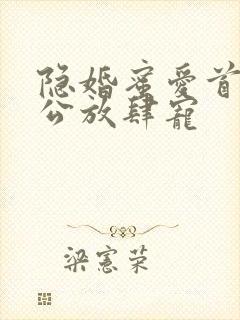 隐婚蜜爱首
公放肆宠
梁宪荣